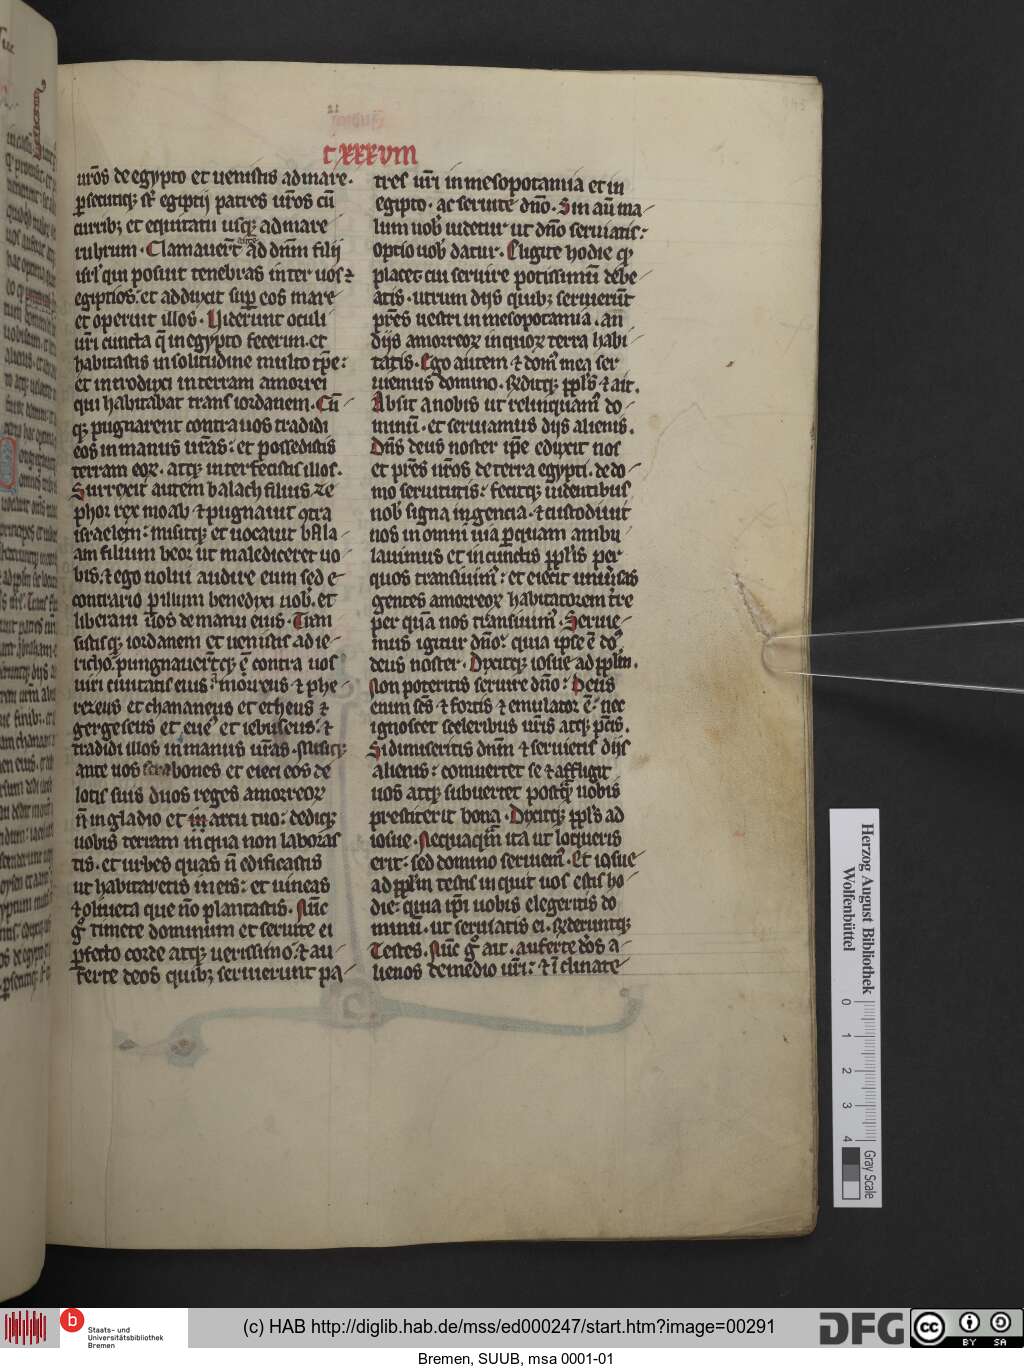 cxxxviii
uros de egypto et uenistis ad mare.
psecutiq; st egiptij patres uros cu
currib; et equitatu usq; ad mare
rubrum. Clamauert aut ad dnm filij
isrl qui posuit tenebras inter uos ⁊
egiptios. et adduxit sup eos mare
et operuit illos. Viderunt oculi
uri cuncta q in egypto fecerim. et
habitastis in solitudine multo tpe:
et introduxi in terram amorrei
qui habitabat trans iordanem. Cu
q; pugnarent contra uos tradidi
eos in manus uras: et possedistis
terram eoꝝ. atq; interfecistis illos.
Surrexit autem balach filius ze
phor rex moab ⁊ pugnauit ꝯtra
israelem: misitq; et uocauit bala
am filium beor ut malediceret uo
bis: ⁊ ego nolui audire eum sed e
contrario p illum benedixi uob. et
liberaui uos de manu eius. Tran
sistisq; iordanem et uenistis ad ie
richo. pungnauertq; ꝯ contra uos
uiri ciuitatis eius: amorreus ⁊ phe
rezeus et chananeus et etheus ⁊
gergeseus et eueus et iebuseus: ⁊
tradidi illos in manus uras. Misiq;
ante uos scrabones et eieci eos de
locis suis duos reges amorreoꝝ
n in gladio et in arcu tuo: dediq;
uobis terram in qua non laboras
tis. et urbes quas n edificastis
ut habitaretis in eis: et uineas
⁊ oliueta que no plantastis. Nuc
g timete dominum et seruite ei
pfecto corde atq; uerissimo: ⁊ au
ferte deos quib; seruierunt pa
tres uri in mesopotamia et in
egipto. ac seruite dno. Sin au ma
lum uob uidetur ut dno seruiatis:
optio uob datur. Eligite hodie q
placet cui seruire potissimu debe
atis. utrum dijs quib; seruierut
pres uestri in mesopotamia. an
dijs amorreoꝝ in quoꝝ terra habi
tatis. Ego autem ⁊ dom mea ser
uiemus domino. Rnditq; ppls ⁊ ait.
Absit a nobis ut relinquam do
minu. et seruiamus dijs alienis.
Dns deus noster ipe eduxit nos
et pres uros de terra egypti. de do
mo seruitutis: fecitq; uidentibus
nob signa ingencia. ⁊ custodiuit
nos in omni uia p quam ambu
lauimus et in cunctis pplis per
quos transiuim: et eiecit uniusas
gentes amorreoꝝ habitatorem tre
per qua nos transiuim. Seruie
mus igitur dno: quia ipse e ds
deus noster. Dixitq; iosue ad pplm.
Non poteritis seruire dno: Deus
enim scs ⁊ fortis ⁊ emulator e: nec
ignoscet sceleribus uris atq; pctis.
Si dimiseritis dnm ⁊ seruietis dijs
alienis: conuertet se ⁊ affligit
uos atq; subuertet postq uobis
prestiterit bona. Dixitq; ppls ad
iosue. Nequaqm ita ut loqueris
erit: sed domino seruiem. Et iosue
ad pplm testis inquit uos estis ho
die: quia ipi uobis elegeritis do
minu. ut seruiatis ei. Rnderuntq;
Testes. Nuc g ait. auferte dos a
lienos de medio uri: ⁊ i clinate
Herzog August Bibliothek
Wolfenbüttel
0 1 2 3 4
Gray Scale
b Staats- und
Universitätsbibliothek
Bremen
(c) HAB http://diglib.hab.de/mss/ed000247/start.htm?image=00291
DFG
cc BY SA
Bremen, SUUB, msa 0001-01